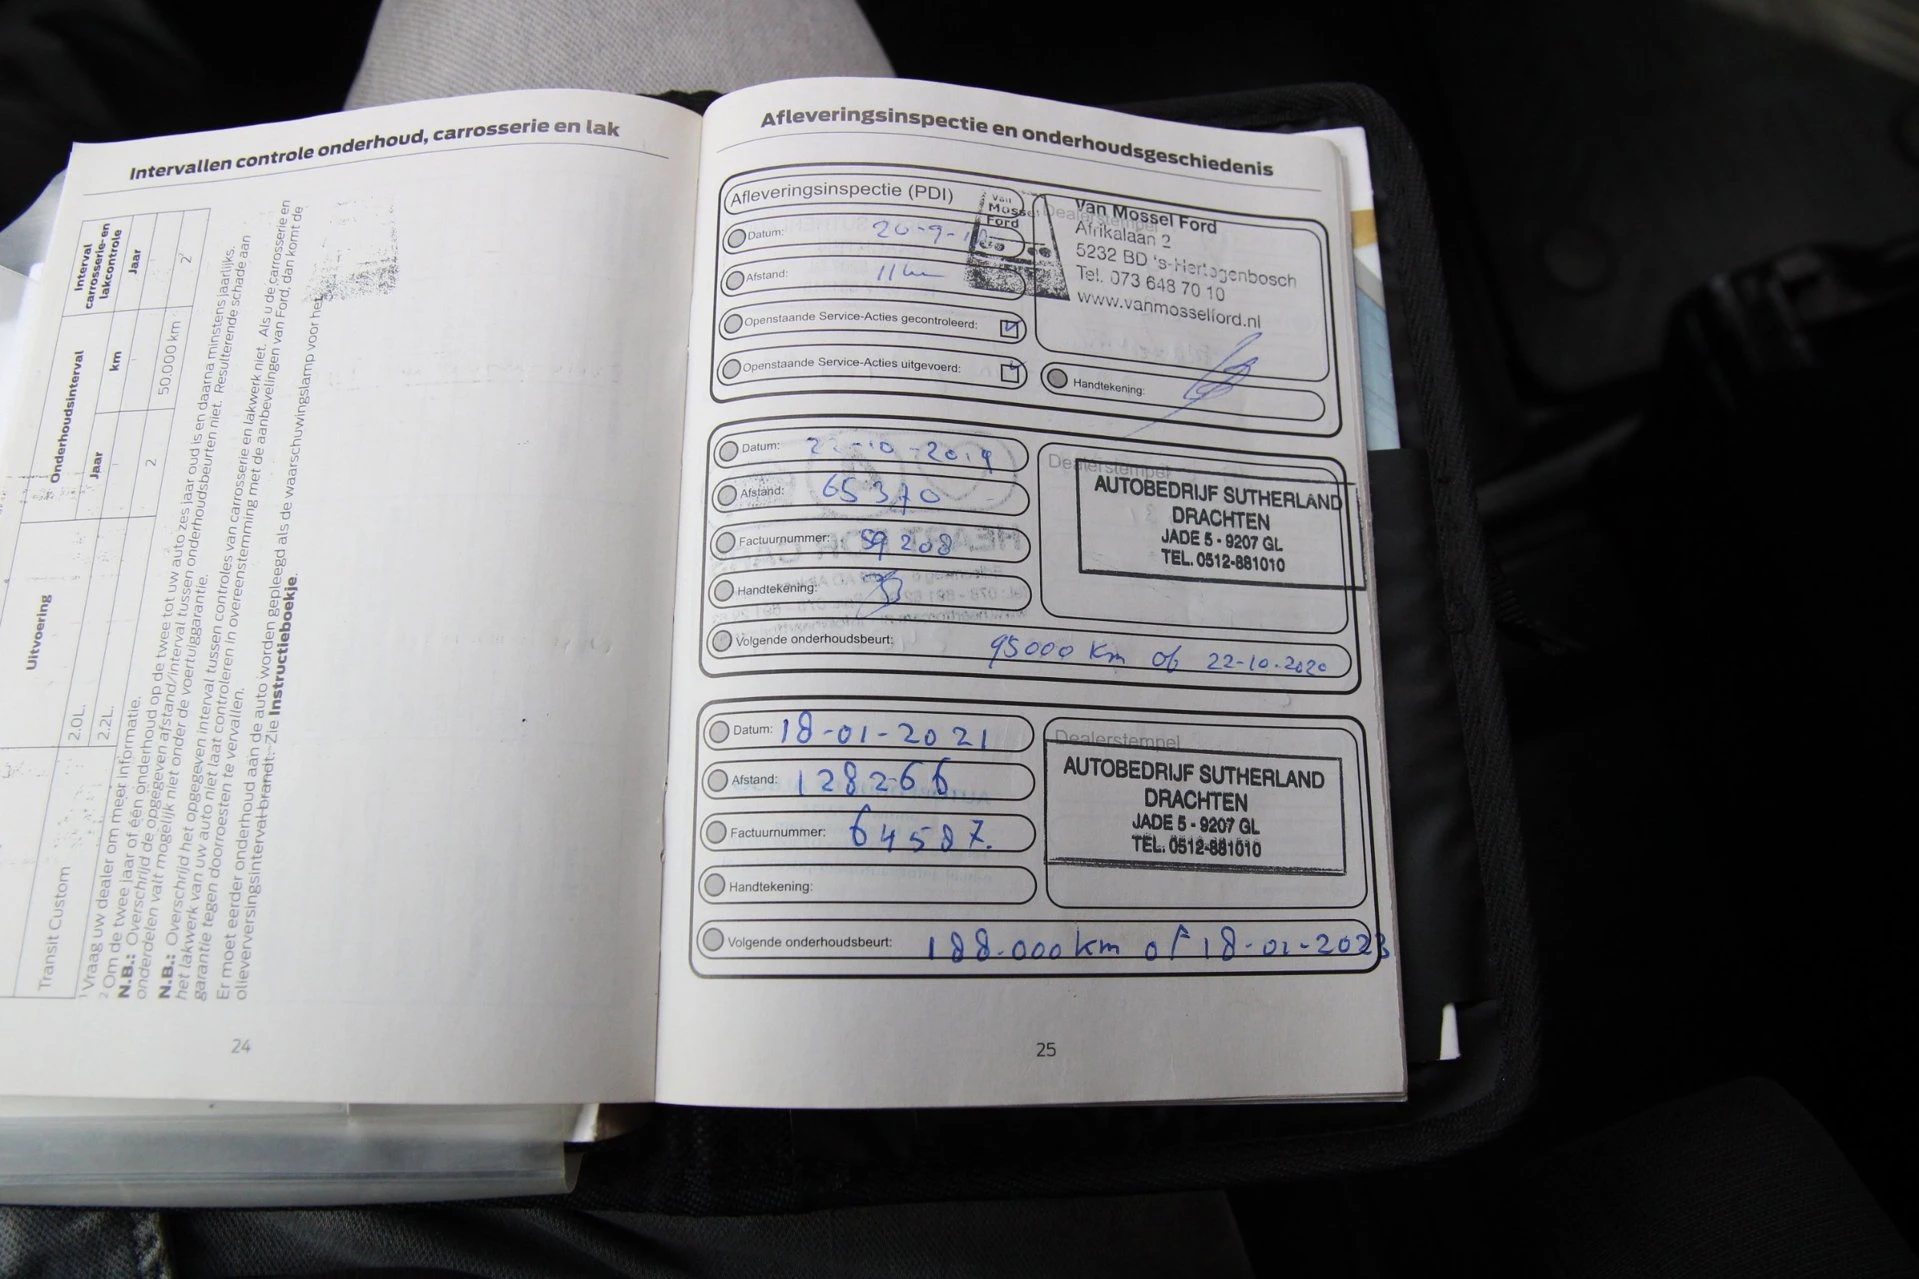 Intervallen controle onderhoud, carrosserie en lak
Uitvoering
Onderhoudsinterval
Interval
carrosserie-en
lakcontrole
Jaar
km
Jaar
Transit Custom
2.0L.
2.2L.
2
50.000 km
2
¹ Vraag uw dealer om meer informatie.
² Om de twee jaar of één onderhoud op de twee tot uw auto zes jaar oud is en daarna minstens jaarlijks.
N.B.: Overschrijd de opgegeven afstand/interval tussen onderhoudsbeurten niet. Resulterende schade aan
onderdelen valt mogelijk niet onder de voertuiggarantie.
N.B.: Overschrijd het opgegeven interval tussen controles van carrosserie en lakwerk niet. Als u de carrosserie en
het lakwerk van uw auto niet laat controleren in overeenstemming met de aanbevelingen van Ford, dan komt de
garantie tegen doorroesten te vervallen.
Er moet eerder onderhoud aan de auto worden gepleegd als de waarschuwingslamp voor het
olieverversingsinterval brandt. Zie Instructieboekje.
24
Afleveringsinspectie en onderhoudsgeschiedenis
Afleveringsinspectie (PDI)
Datum: 20-9-
Afstand: 11 km
Openstaande Service-Acties gecontroleerd:
Openstaande Service-Acties uitgevoerd:
Van
Mossel
Ford
Dealerstempel
Van Mossel Ford
Afrikalaan 2
5232 BD 's-Hertogenbosch
Tel. 073 648 70 10
www.vanmosselford.nl
Handtekening:
Datum: 22-10-2019
Afstand: 65370
Factuurnummer: 59208
Handtekening:
Volgende onderhoudsbeurt: 95000 km of 22-10-2020
Dealerstempel
AUTOBEDRIJF SUTHERLAND
DRACHTEN
JADE 5 - 9207 GL
TEL. 0512-881010
Datum: 18-01-2021
Afstand: 128266
Factuurnummer: 64587.
Handtekening:
Volgende onderhoudsbeurt: 188.000 km of 18-01-2023
Dealerstempel
AUTOBEDRIJF SUTHERLAND
DRACHTEN
JADE 5 - 9207 GL
TEL. 0512-881010
25